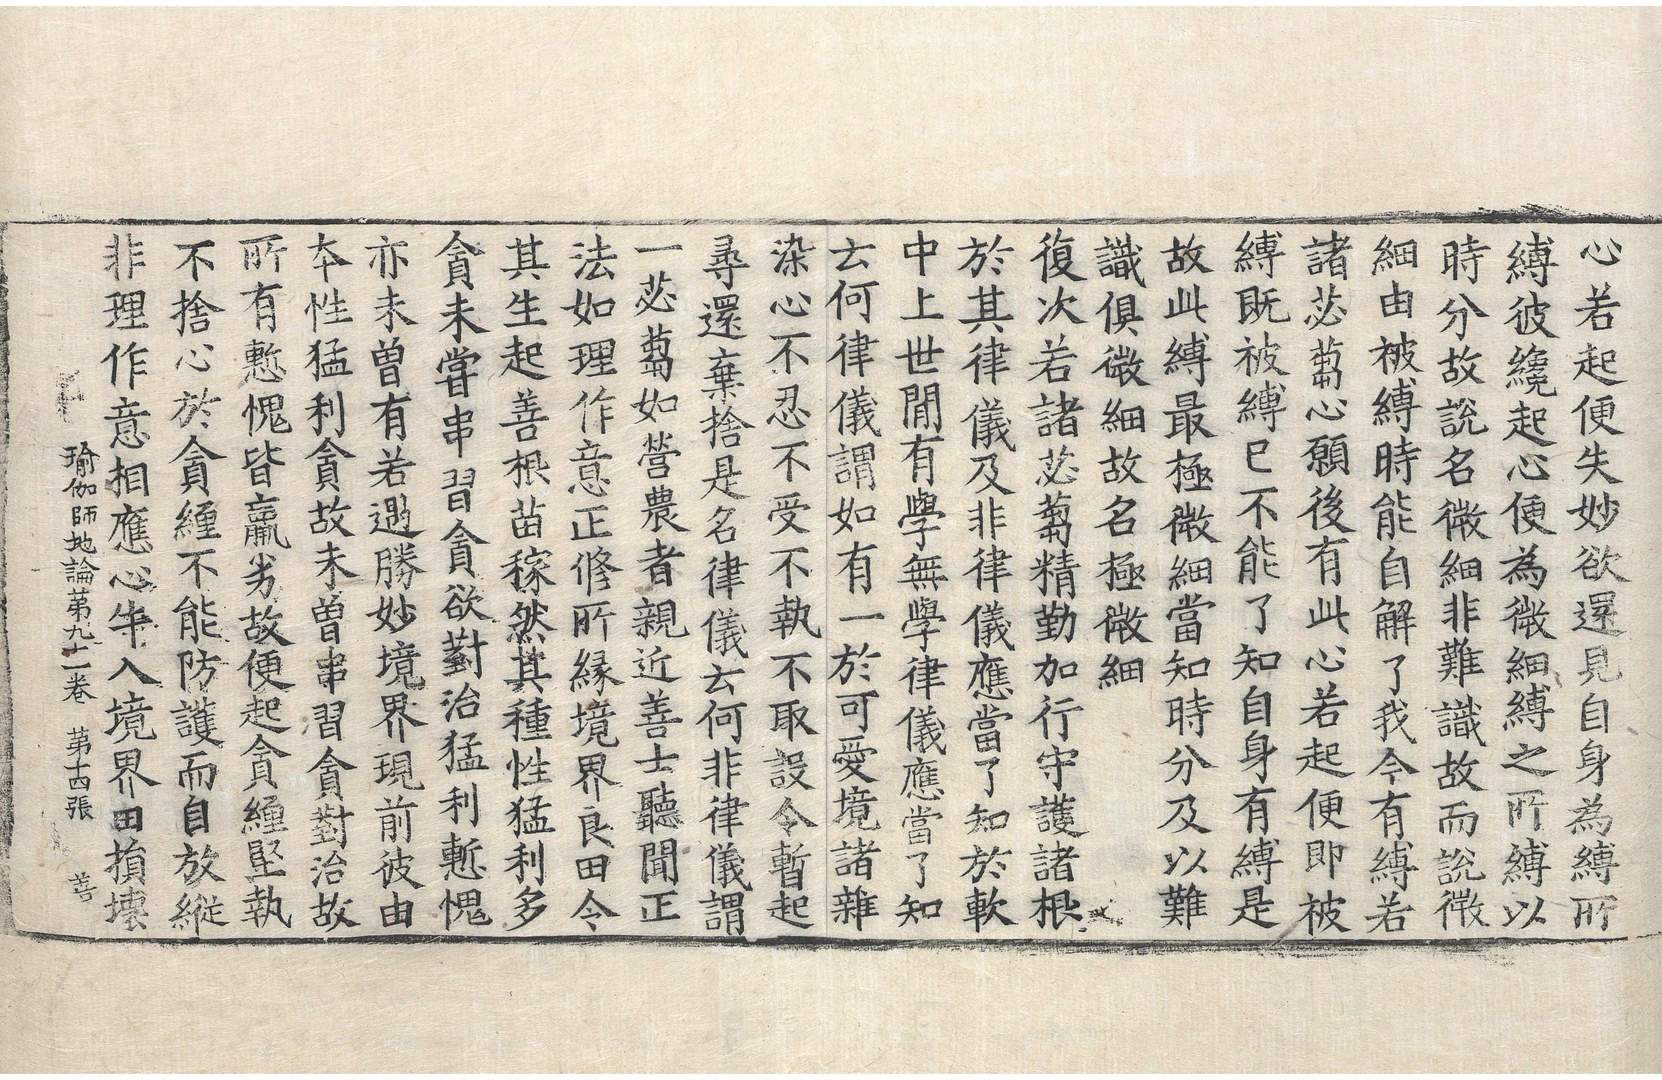 心若起便失妙欲還見自身為縛所
縛彼纔起心便為微細縛之所縛以
時分故說名微細非難識故而說微
細由被縛時能自解了我今有縛若
諸苾蒭心願後有此心若起便即被
縛既被縛已不能了知自身有縛是
故此縛最極微細當知時分及以難
識俱微細故名極微細
復次若諸苾蒭精勤加行守護諸根
於其律儀及非律儀應當了知於軟
中上世閒有學無學律儀應當了知
云何律儀謂如有一於可愛境諸雜
染心不忍不受不執不取設令暫起
尋還棄捨是名律儀云何非律儀謂
一苾蒭如營農者親近善士聽聞正
法如理作意正修所緣境界良田令
其生起善根苗稼然其種性猛利多
貪未甞串習貪欲對治猛利慙愧
亦未曾有若遇勝妙境界現前彼由
本性猛利貪故未曾串習貪對治故
所有慙愧皆羸劣故便起貪纏堅執
不捨心於貪纏不能防護而自放縱
非理作意相應心牛入境界田損壞
瑜伽師地論第九十一卷 第十四張 善